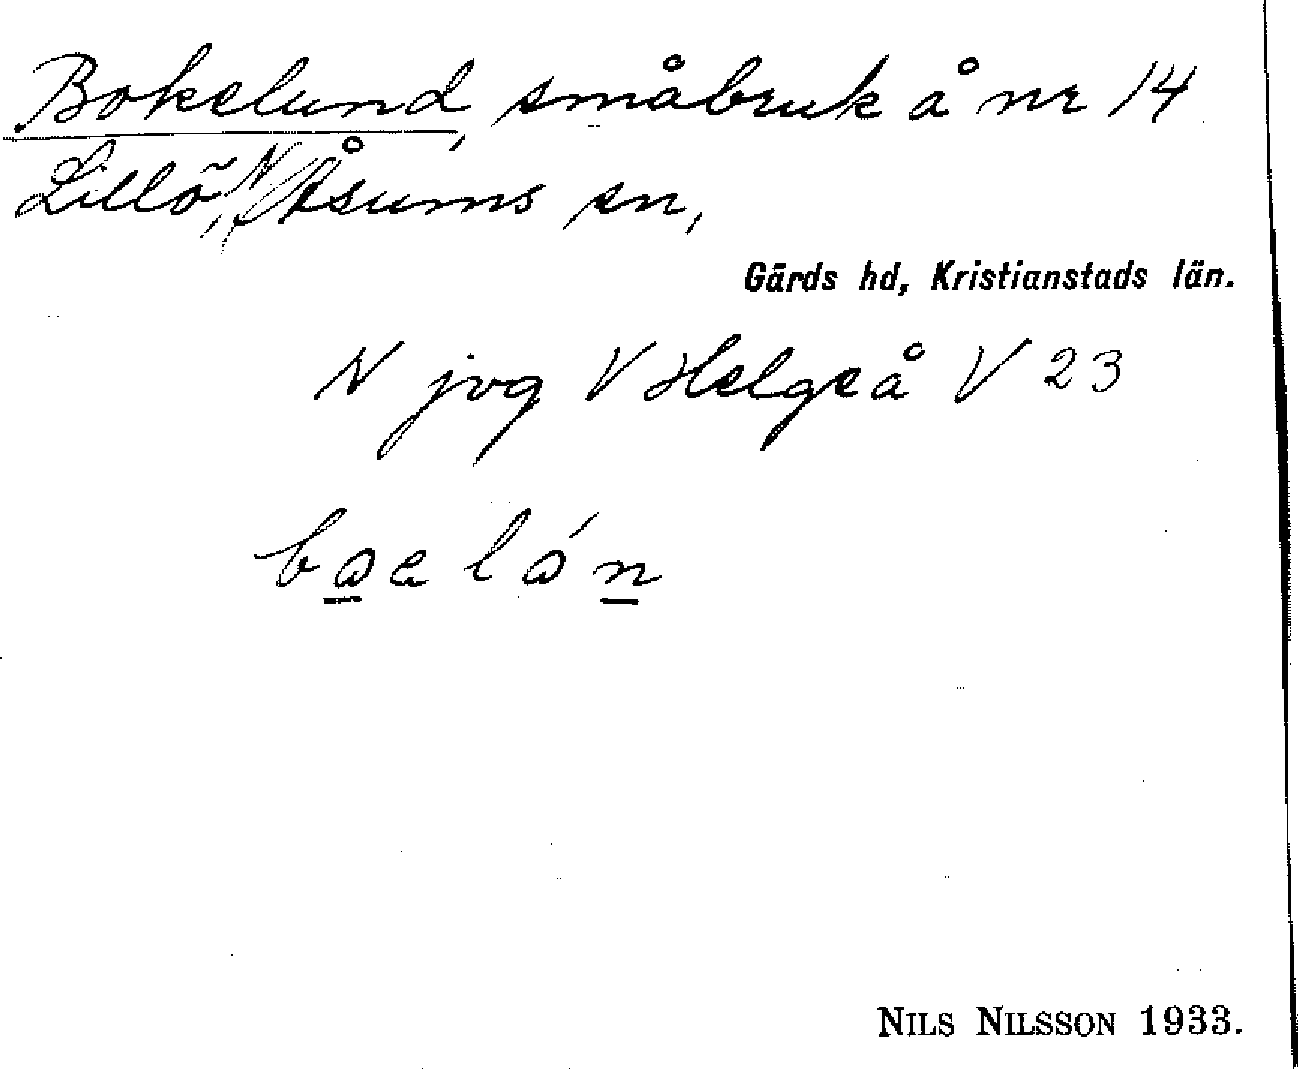 Bokelund, småbruk å nr 14
Lillö, N Åsums sn,
Gärds hd, Kristianstads län.
N jvg V Helgeå V 23
NILS NILSSON 1933.